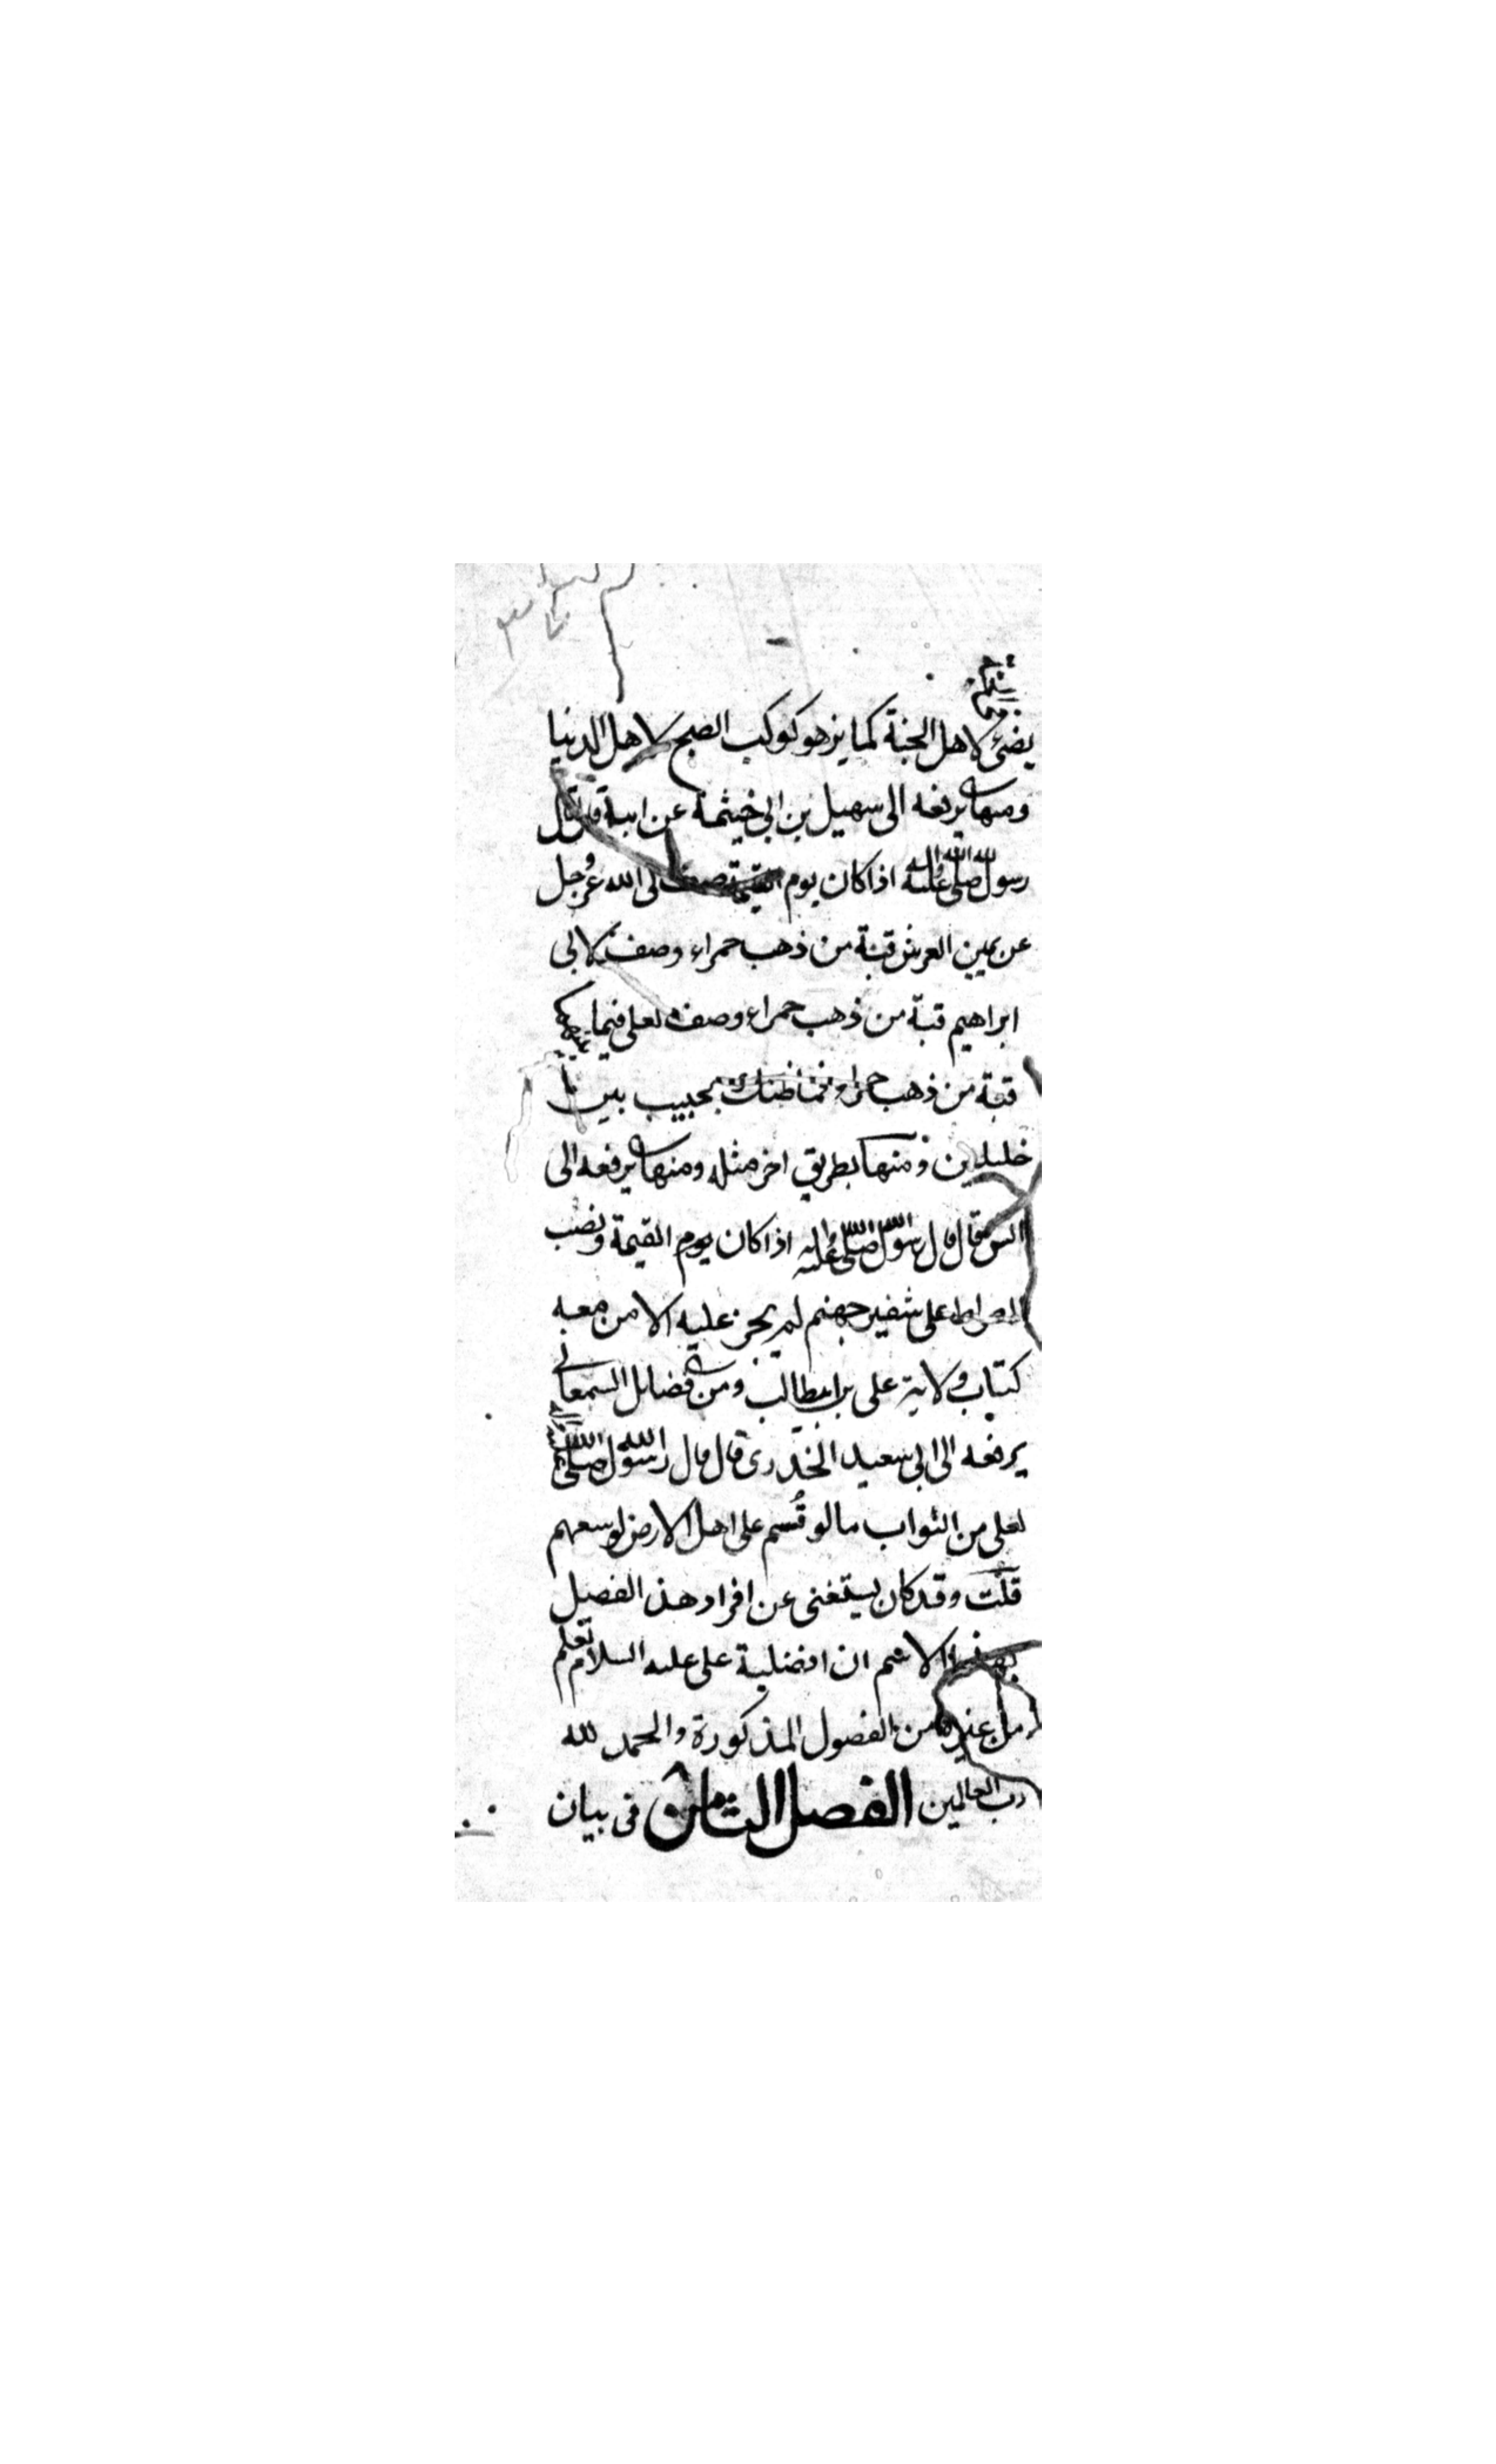 يضئ لاهل الجنة كما يزهو كوكب الصبح لاهل الدنيا
ومنها يرفعه الى سهيل بن ابي خيثمة عن ابيه قال قال
رسول الله صلى الله عليه واله اذا كان يوم القيمة صف لى الله عز وجل
عن يمين العرش قبة من ذهب حمراء وصف لابى
ابراهيم قبة من ذهب حمراء وصف لعلى فيما
قبة من ذهب حمراء فما ظنك بحبيب بين
خليلين ومنها بطريق اخر مثله ومنها يرفعه الى
انس قال قال رسول الله صلى الله عليه اذا كان يوم القيمة ونصب
الصراط على شفير جهنم لم يجز عليه الا من معه
كتاب ولاية على بن ابيطالب ومن فضائل السمعانى
يرفعه الى ابى سعيد الخدرى قال قال رسول الله صلى الله
لعلى من الثواب ما لو قُسم على اهل الارض لوسعهم
قلت وقد كان يستغنى عن افراد هذ الفصل
بهذا الاسم ان افضلية على عليه السلام تعلم
من الفصول المذكورة والحمد لله
رب العالمين الفصل الثامن فى بيان